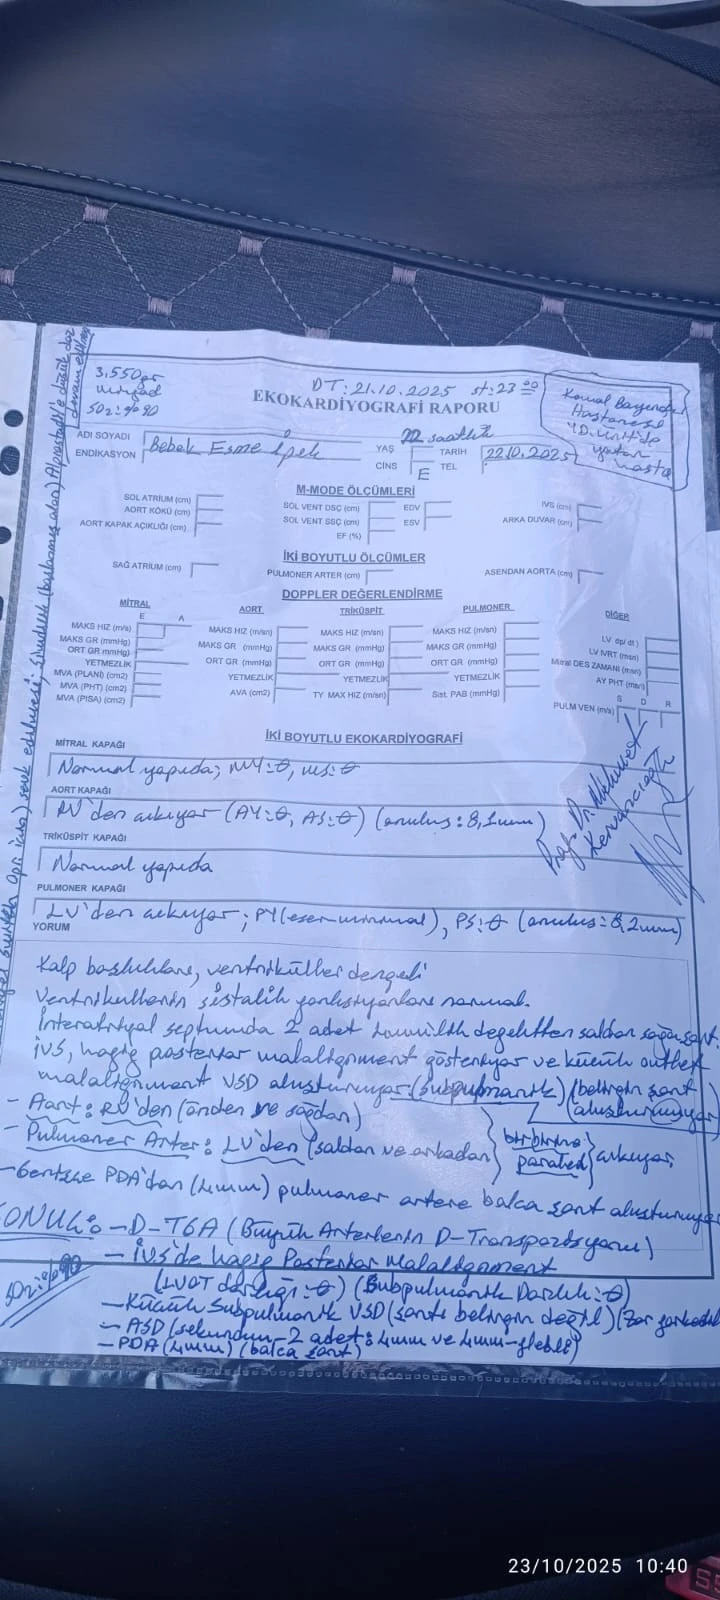 3.550gr
miyad
SO2: %90
DT: 21.10.2025 st: 23 00
EKOKARDİYOGRAFİ RAPORU
Hastanesi
YD. Ünit'de
yatan
hasta
ADI SOYADI Bebek Esme İpek YAŞ 22 saatlik TARİH 22.10.2025
ENDİKASYON CİNS E TEL
M-MODE ÖLÇÜMLERİ
SOL ATRİUM (cm) SOL VENT DSÇ (cm) EDV IVS (cm)
AORT KÖKÜ (cm) SOL VENT SSÇ (cm) ESV ARKA DUVAR (cm)
AORT KAPAK AÇIKLIĞI (cm) EF (%)
İKİ BOYUTLU ÖLÇÜMLER
SAĞ ATRİUM (cm) PULMONER ARTER (cm) ASENDAN AORTA (cm)
DOPPLER DEĞERLENDİRME
MİTRAL AORT TRİKÜSPİT PULMONER DİĞER
E A
MAKS HIZ (m/s) MAKS HIZ (m/sn) MAKS HIZ (m/sn) MAKS HIZ (m/sn) LV dp/dt
MAKS GR (mmHg) MAKS GR (mmHg) MAKS GR (mmHg) MAKS GR (mmHg) LV IVRT (msn)
ORT GR (mmHg) ORT GR (mmHg) ORT GR (mmHg) ORT GR (mmHg) Mitral DES ZAMANI (msn)
YETMEZLİK YETMEZLİK YETMEZLİK YETMEZLİK AY PHT (msn)
MVA (PLANİ) (cm2) AVA (cm2) TY MAX HIZ (m/sn) Sist. PAB (mmHg) S D R
MVA (PHT) (cm2) PULM VEN (m/s)
MVA (PISA) (cm2)
İKİ BOYUTLU EKOKARDİYOGRAFİ
MİTRAL KAPAĞI
Normal yapıda; MY:θ, MS:θ
AORT KAPAĞI
RV'den çıkıyor (AY:θ, AS:θ) (anulus: 8,1mm)
Prof. Dr. Mehmet
TRİKÜSPİT KAPAĞI
Normal yapıda
PULMONER KAPAĞI
LV'den çıkıyor; PY(eser-minimal), PS:θ (anulus: 8,2mm)
YORUM
Kalp boşlukları, ventriküller dengeli
Ventriküllerin sistolik fonksiyonları normal.
İnteratriyal septumda 2 adet 4mm'lik defektten soldan sağa şant.
IVS, hafif posterior malalignment gösteriyor ve küçük outlet
malalignment VSD oluşturuyor (subpulmonik) (belirgin şant
oluşturmuyor)
- Aort: RV'den (önden ve sağdan)
- Pulmoner Arter: LV'den (soldan ve arkadan) birbirine paralel çıkıyor.
- Gentşçe PDA'dan (4mm) pulmoner artere bolca şant oluşturuyor
SONUÇ: - D-TGA (Büyük Arterlerin D-Transpozisyonu)
- IVS'de hafif Posterior Malalignment
(LVOT darlığı:θ) (Subpulmonik Darlık:θ)
SO2: %90
- Küçük Subpulmonik VSD (şantı belirgin değil)
- ASD (sekundum - 2 adet: 4mm ve 4mm
- PDA (4mm) (bolca şant)
23/10/2025 10:40